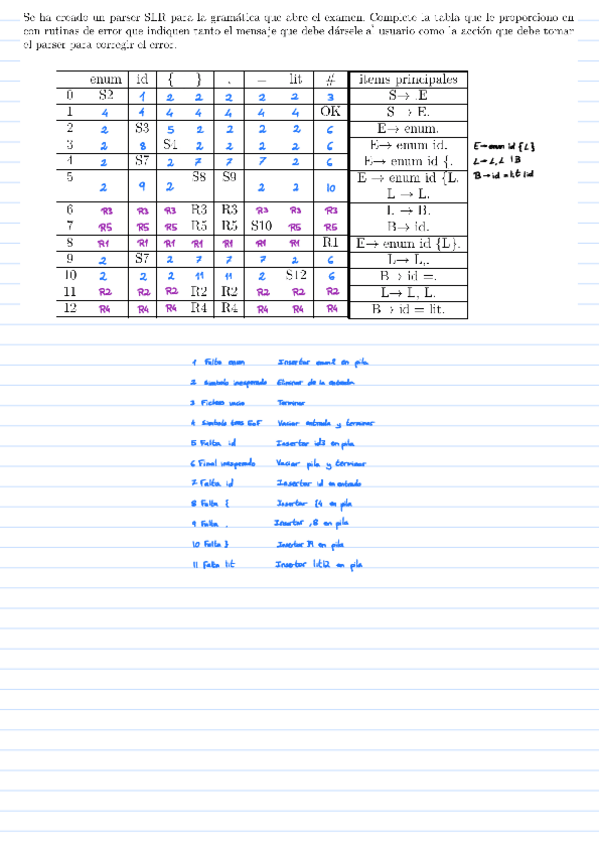 Se ha creado un parser SLR para la gramática que abre el examen. Complete la tabla que le proporciono en
con rutinas de error que indiquen tanto el mensaje que debe dársele al usuario como la acción que debe tomar
el parser para corregir el error.
enum id { } , = lit # items principales
0 S2 1 2 2 2 2 2 3 S→ .E
1 4 4 4 4 4 4 4 OK S → E.
2 2 S3 5 2 2 2 2 6 E→ enum.
3 2 8 S4 2 2 2 2 6 E→ enum id. E→enum id {L}
4 2 S7 2 7 7 7 2 6 E→ enum id {. L→L,L | B
5 2 9 2 S8 S9 2 2 10 E → enum id {L. B→id = lit | id
L → L.
6 R3 R3 R3 R3 R3 R3 R3 R3 L → B.
7 R5 R5 R5 R5 R5 S10 R5 R5 B→ id.
8 R1 R1 R1 R1 R1 R1 R1 R1 E→ enum id {L}.
9 2 S7 2 7 7 7 2 6 L→ L,.
10 2 2 2 11 11 2 S12 6 B → id =.
11 R2 R2 R2 R2 R2 R2 R2 R2 L→ L, L.
12 R4 R4 R4 R4 R4 R4 R4 R4 B → id = lit.
1 Falta enum Insertar enum2 en pila
2 Simbolo inesperado Eliminar de la entrada
3 Fichero vacio Terminar
4 Simbolo tras EoF Vaciar entrada y terminar
5 Falta id Insertar id3 en pila
6 Final inesperado Vaciar pila y terminar
7 Falta id Insertar id en entrada
8 Falta { Insertar {4 en pila
9 Falta , Insertar ,8 en pila
10 Falta } Insertar en pila
11 Falta lit Insertar lit12 en pila